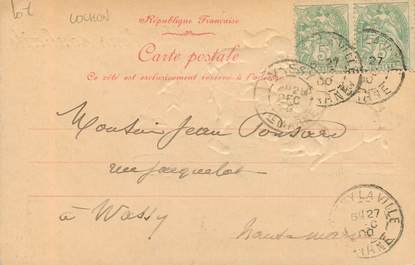 Lot
COCHON
République Française
Carte postale
Ce côté est exclusivement réservé à l'adresse
Monsieur Jean Ponsard
rue Jacquelot
à Wassy
Haute Marne
LA VILLE
27